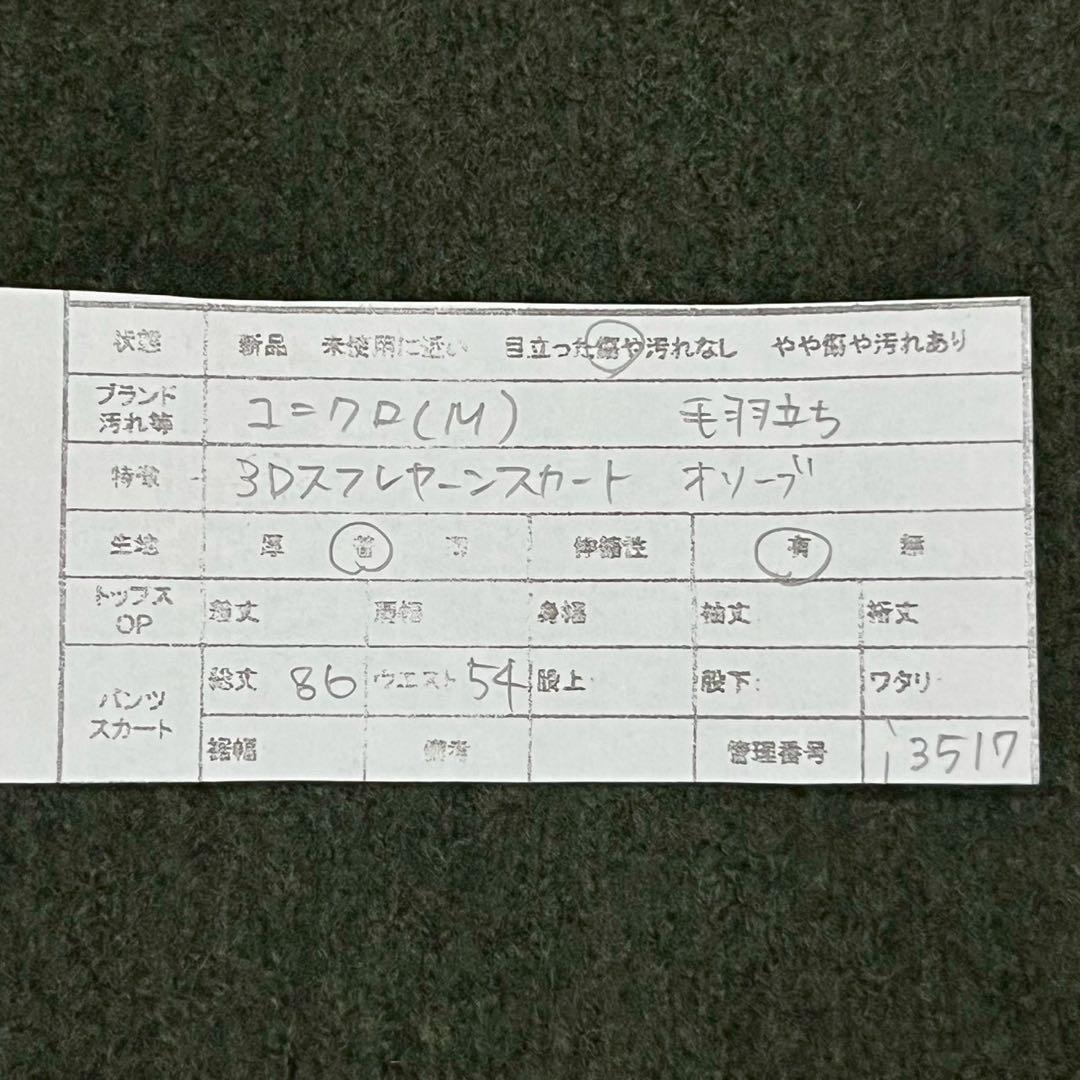 状態 新品 未使用に近い 目立った傷や汚れなし やや傷や汚れあり
ブランド
汚れ等 ユニクロ(M) 毛羽立ち
特徴 3Dスフレヤーンスカート オリーブ
生地 厚 普 薄 伸縮性 有 無
トップス
OP 着丈 肩幅 身幅 袖丈 裄丈
パンツ
スカート 総丈 86 ウエスト 54 股上 股下 ワタリ
裾幅 備考 管理番号 i3517